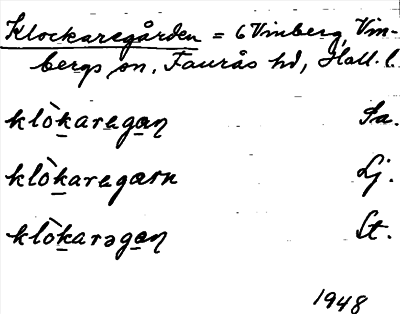 Klockaregården = 6 Vinberg, Vin-
bergs sn, Faurås hd, Hall. l.
klòkaregan Sa.
klòkaregæsn Lj.
klòkarəgan St.
1948